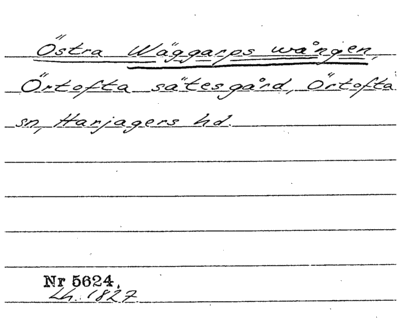 Östra Wäggarps wången,
Örtofta sätesgård, Örtofta
sn, Harjagers hd.
Nr 5624.
Lh. 1827